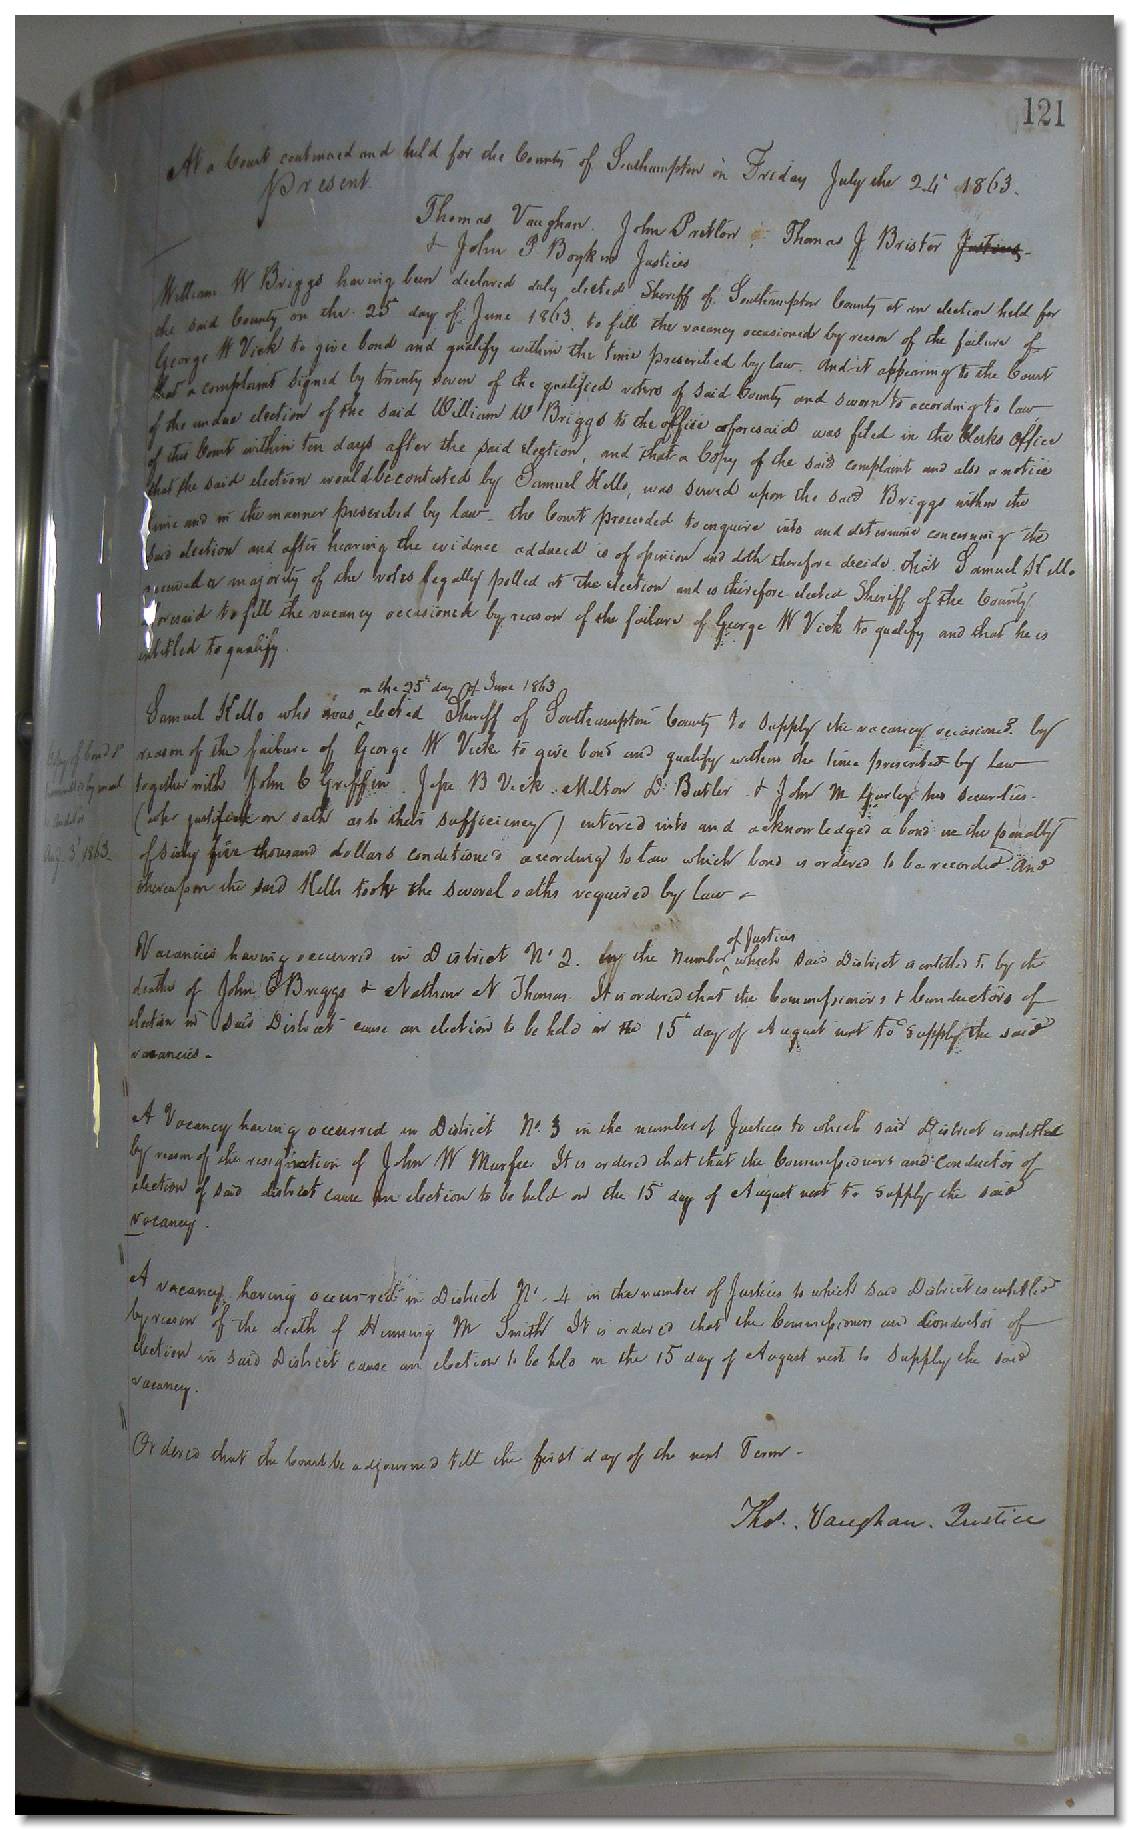 121
At a Court continued and held for the County of Southampton on Friday July the 24th 1863.
Present.
Thomas Vaughan. John Pretlow Thomas J Bristor Justices
& John P Boykin Justices
William W Briggs having been declared duly elected Sheriff of Southampton County at an election held for
the said County on the 25th day of June 1863. to fill the vacancy occasioned by reason of the failure of
George W Vick to give bond and qualify within the time prescribed by law. And it appearing to the Court
that a complaint signed by twenty seven of the qualified voters of said County and sworn to according to law
of the undue election of the said William W Briggs to the office aforesaid was filed in the Clerks Office
of this Court within ten days after the said Election, and that a Copy of the said complaint and also a notice
that the said election would be contested by Samuel Kello, was served upon the said Briggs within the
time and in the manner prescribed by law - the Court proceeded to enquire into and determine concerning the
said election and after hearing the evidence adduced is of opinion and doth therefore decide, that Samuel Kello
received a majority of the votes legally polled at the election and is therefore elected Sheriff of the County
aforesaid to fill the vacancy occasioned by reason of the failure of George W Vick to qualify and that he is
entitled to qualify.
on the 25th day of June 1863
Samuel Kello who was elected Sheriff of Southampton County to supply the vacancy occasioned by
reason of the failure of George W Vick to give bond and qualify within the time prescribed by law
together with John C Griffin. Jesse B Vick. Milton D. Butler & John M Gurley his securities-
(who justified on oath as to their sufficiency) entered into and acknowledged a bond in the penalty
of sixty five thousand dollars conditioned according to law which bond is ordered to be recorded. And
thereupon the said Kello took the several oaths required by law -
Copy of bond &
by mail
to Auditor
Aug. 3d 1863
of Justices
Vacancies having occurred in District No 2. in the number which said District is entitled to by the
death of John C Briggs & Nathan N Thomas. It is ordered that the Commissioners & Conductors of
election in said District cause an election to be held on the 15th day of August next to supply the said
vacancies -
A Vacancy having occurred in District No. 3 in the number of Justices to which said District is entitled
by reason of the resignation of John W Murfee It is ordered that that the Commissioners and Conductor of
election of said district cause an election to be held on the 15 day of August next to supply the said
vacancy.
A vacancy having occurred in District No. 4 in the number of Justices to which said District is entitled
by reason of the death of Henning M Smith It is ordered that the Commissioners and Conductor of
election in said District cause an election to be held on the 15 day of August next to supply the said
vacancy.
Ordered that the Court be adjourned till the first day of the next Term -
Thos. Vaughan. Justice